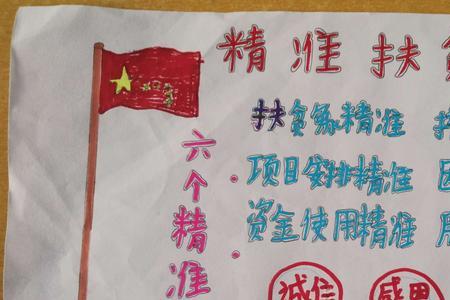 精准扶
六个精准
扶贫家精准
项目安排精准
资金使用精准
诚信
感恩